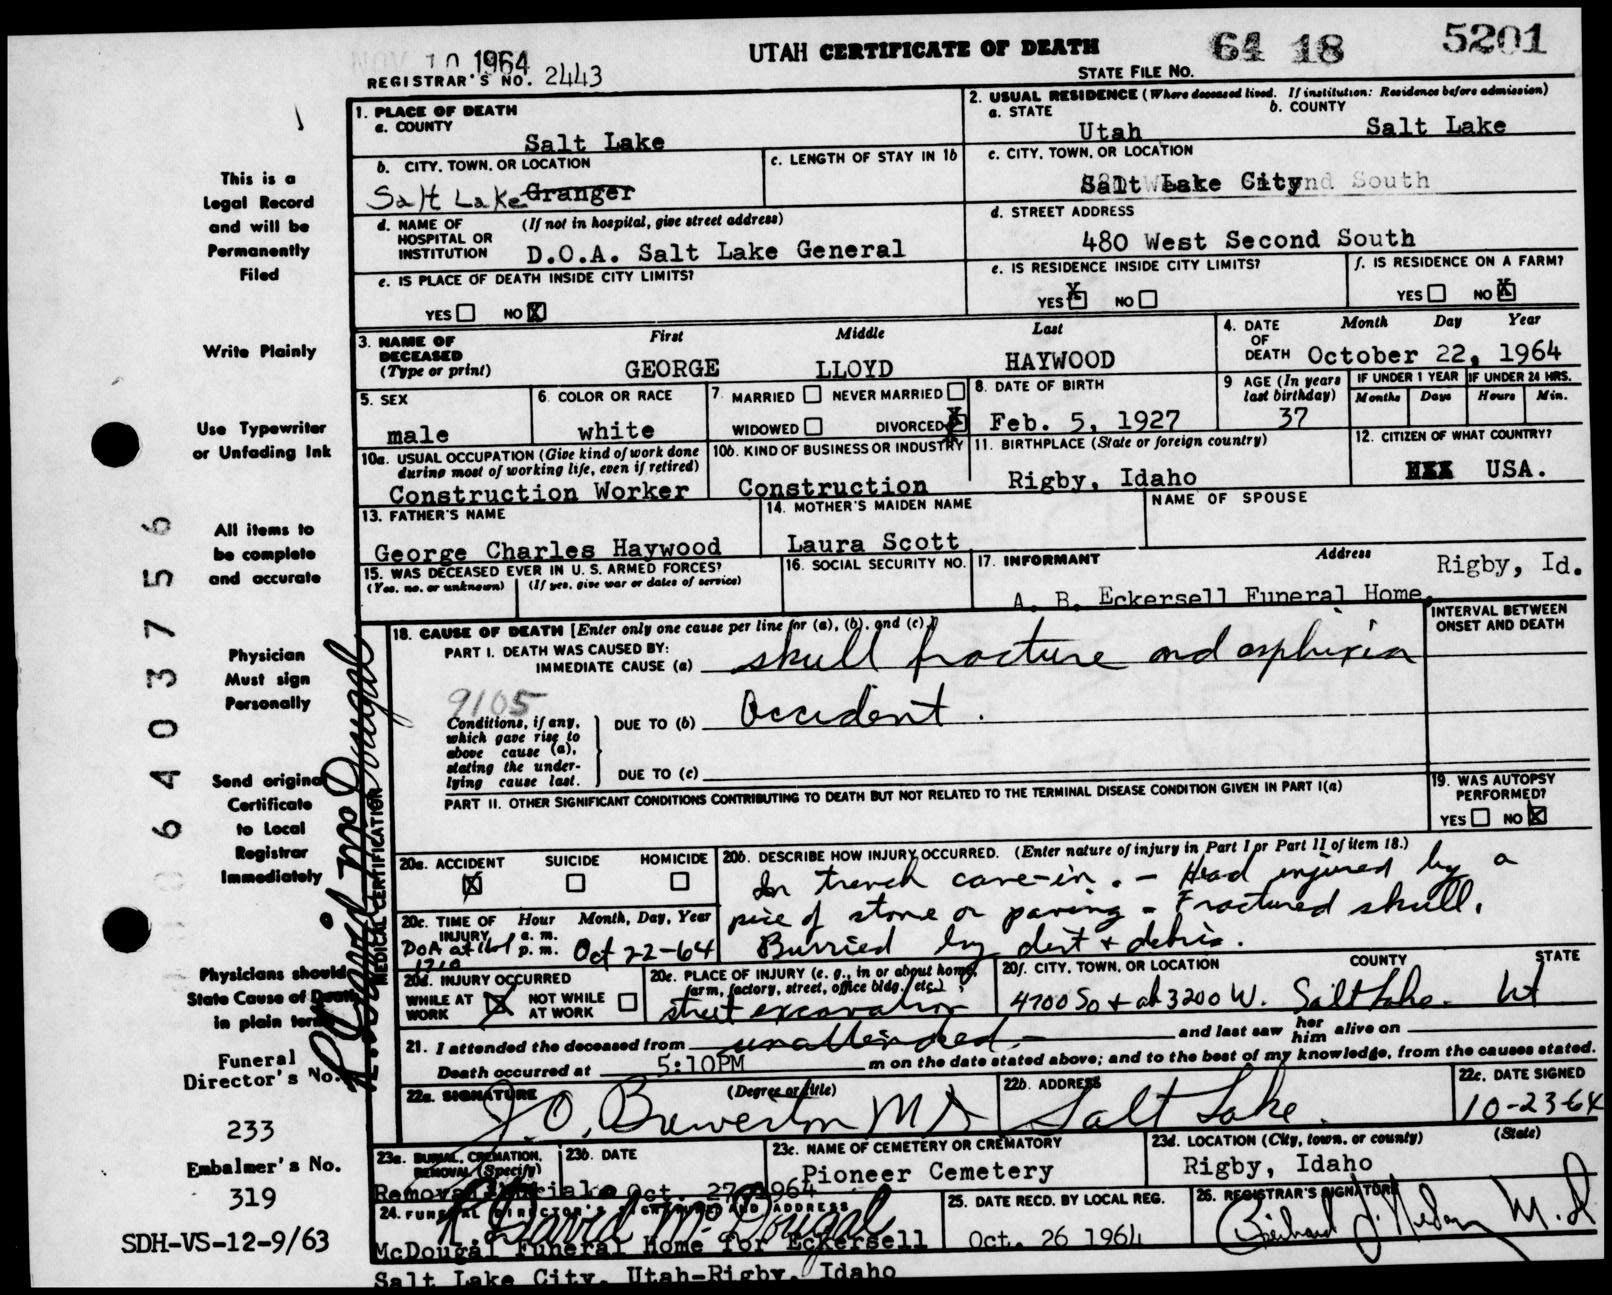 NOV 10 1964
UTAH CERTIFICATE OF DEATH
64 18 5201
REGISTRAR'S NO. 2443
STATE FILE NO.
1. PLACE OF DEATH
a. COUNTY
Salt Lake
2. USUAL RESIDENCE (Where deceased lived. If institution: Residence before admission)
a. STATE
Utah
b. COUNTY
Salt Lake
b. CITY, TOWN, OR LOCATION
Salt Lake Granger
c. LENGTH OF STAY IN 1b
c. CITY, TOWN, OR LOCATION
Salt Lake City
d. NAME OF HOSPITAL OR INSTITUTION
(If not in hospital, give street address)
D.O.A. Salt Lake General
d. STREET ADDRESS
480 West Second South
e. IS PLACE OF DEATH INSIDE CITY LIMITS?
YES NO X
e. IS RESIDENCE INSIDE CITY LIMITS?
YES X NO
f. IS RESIDENCE ON A FARM?
YES NO X
3. NAME OF DECEASED (Type or print)
First Middle Last
GEORGE LLOYD HAYWOOD
4. DATE OF DEATH
Month Day Year
October 22, 1964
5. SEX
male
6. COLOR OR RACE
white
7. MARRIED NEVER MARRIED
WIDOWED DIVORCED X
8. DATE OF BIRTH
Feb. 5, 1927
9 AGE (In years last birthday)
37
IF UNDER 1 YEAR
Months Days
IF UNDER 24 HRS.
Hours Min.
10a. USUAL OCCUPATION (Give kind of work done during most of working life, even if retired)
Construction Worker
10b. KIND OF BUSINESS OR INDUSTRY
Construction
11. BIRTHPLACE (State or foreign country)
Rigby, Idaho
12. CITIZEN OF WHAT COUNTRY?
USA.
13. FATHER'S NAME
George Charles Haywood
14. MOTHER'S MAIDEN NAME
Laura Scott
NAME OF SPOUSE
15. WAS DECEASED EVER IN U. S. ARMED FORCES?
(Yes, no, or unknown) (If yes, give war or dates of service)
16. SOCIAL SECURITY NO.
17. INFORMANT Address
Rigby, Id.
A. B. Eckersell Funeral Home,
18. CAUSE OF DEATH [Enter only one cause per line for (a), (b), and (c).]
INTERVAL BETWEEN ONSET AND DEATH
PART I. DEATH WAS CAUSED BY:
IMMEDIATE CAUSE (a) skull fracture and asphixia
9105
Conditions, if any, which gave rise to above cause (a), stating the underlying cause last.
DUE TO (b) Accident.
DUE TO (c)
PART II. OTHER SIGNIFICANT CONDITIONS CONTRIBUTING TO DEATH BUT NOT RELATED TO THE TERMINAL DISEASE CONDITION GIVEN IN PART I(a)
19. WAS AUTOPSY PERFORMED?
YES NO X
20a. ACCIDENT SUICIDE HOMICIDE
X
20b. DESCRIBE HOW INJURY OCCURRED. (Enter nature of injury in Part I or Part II of item 18.)
In trench cave-in. - Head injured by a
piece of stone or paving - Fractured skull.
Burried by dirt + debris.
20c. TIME OF INJURY
Hour Month, Day, Year
a. m.
p. m.
DOA at
1710
Oct 22-64
20d. INJURY OCCURRED
WHILE AT WORK X NOT WHILE AT WORK
20e. PLACE OF INJURY (e. g., in or about home, farm, factory, street, office bldg. etc.)
street excavation
20f. CITY, TOWN, OR LOCATION COUNTY STATE
4700 So + at 3200 W. Salt Lake. Ut
21. I attended the deceased from unattended - and last saw her him alive on
Death occurred at 5:10PM m on the date stated above; and to the best of my knowledge, from the causes stated.
22a. SIGNATURE (Degree or title)
J. O. Brewerton MD
22b. ADDRESS
Salt Lake.
22c. DATE SIGNED
10-23-64
23a. BURIAL, CREMATION, REMOVAL (Specify)
Removal
23b. DATE
Oct. 27, 1964
23c. NAME OF CEMETERY OR CREMATORY
Pioneer Cemetery
23d. LOCATION (City, town, or county) (State)
Rigby, Idaho
24. FUNERAL DIRECTOR'S SIGNATURE AND ADDRESS
R. David McDougal
McDougal Funeral Home for Eckersell
Salt Lake City, Utah-Rigby, Idaho
25. DATE RECD. BY LOCAL REG.
Oct. 26 1964
26. REGISTRAR'S SIGNATURE
M.D.
This is a
Legal Record
and will be
Permanently
Filed
Write Plainly
Use Typewriter
or Unfading Ink
All items to
be complete
and accurate
Physician
Must sign
Personally
Send original
Certificate
to Local
Registrar
Immediately
Physicians should
State Cause of Death
in plain terms
Funeral
Director's No.
233
Embalmer's No.
319
SDH-VS-12-9/63
MEDICAL CERTIFICATION
R. David McDougal
64037756